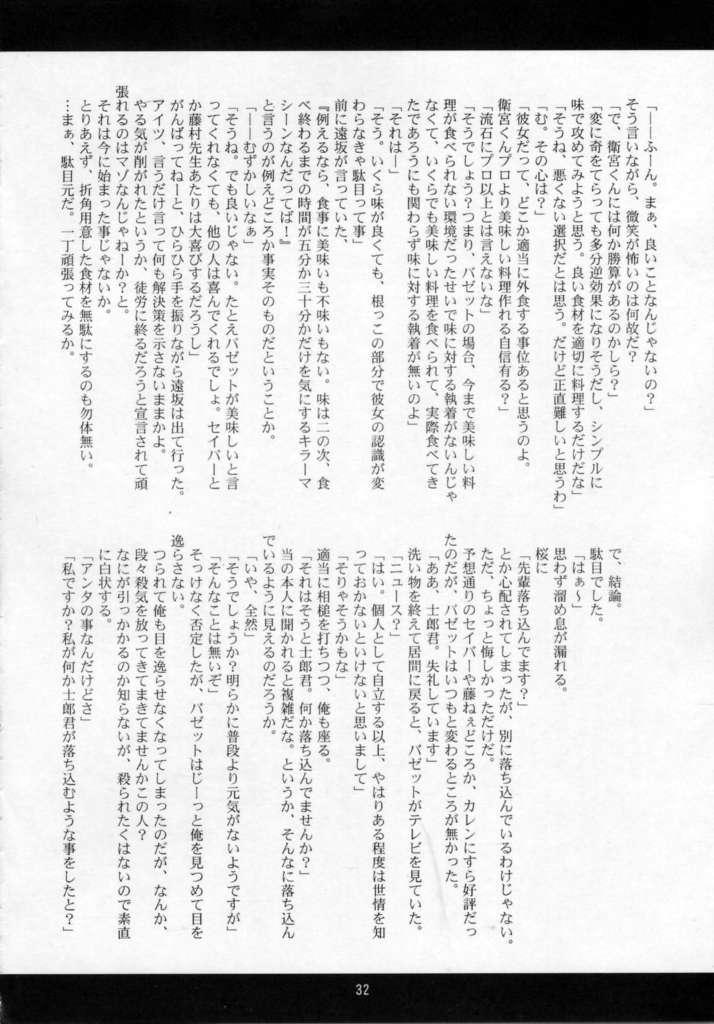 「――ふーん。まぁ、良いことなんじゃないの？」
そう言いながら、微笑が怖いのは何故だ？
「で、衛宮くんには何か勝算があるのかしら？」
「変に奇をてらっても多分逆効果になりそうだし、シンプルに
味で攻めてみようと思う。良い食材を適切に料理するだけだな」
「そうね、悪くない選択だとは思う。だけど正直難しいと思うわ」
「む。その心は？」
「彼女だって、どこか適当に外食する事位あると思うのよ。
衛宮くんプロより美味しい料理作れる自信有る？」
「流石にプロ以上とは言えないな」
「そうでしょう？つまり、バゼットの場合、今まで美味しい料
理が食べられない環境だったせいで味に対する執着がないんじゃ
なくて、いくらでも美味しい料理を食べられて、実際食べてき
たであろうにも関わらず味に対する執着が無いのよ」
「それは―」
「そう。いくら味が良くても、根っこの部分で彼女の認識が変
わらなきゃ駄目って事」
前に遠坂が言っていた、
『例えるなら、食事に美味いも不味いもない。味は二の次、食
べ終わるまでの時間が五分か三十分かだけを気にするキラーマ
シーンなんだってば！』
と言うのが例えどころか事実そのものだということか。
「――むずかしいなぁ」
「そうね。でも良いじゃない。たとえバゼットが美味しいと言
ってくれなくても、他の人は喜んでくれるでしょ。セイバーと
か藤村先生あたりは大喜びするだろうし」
がんばってねーと、ひらひら手を振りながら遠坂は出て行った。
アイツ、言うだけ言って何も解決策を示さないままかよ。
やる気が削がれたというか、徒労に終るだろうと宣言されて頑
張れるのはマゾなんじゃねーか？と。
それは今に始まった事じゃないか。
とりあえず、折角用意した食材を無駄にするのも勿体無い。
…まぁ、駄目元だ。一丁頑張ってみるか。
で、結論。
駄目でした。
「はぁ～」
思わず溜め息が漏れる。
桜に
「先輩落ち込んでます？」
とか心配されてしまったが、別に落ち込んでいるわけじゃない。
ただ、ちょっと悔しかっただけだ。
予想通りのセイバーや藤ねぇどころか、カレンにすら好評だっ
たのだが、バゼットはいつもと変わるところが無かった。
「ああ、士郎君。失礼しています」
洗い物を終えて居間に戻ると、バゼットがテレビを見ていた。
「ニュース？」
「はい。個人として自立する以上、やはりある程度は世情を知
っておかないといけないと思いまして」
「そりゃそうかもな」
適当に相槌を打ちつつ、俺も座る。
「それはそうと士郎君。何か落ち込んでませんか？」
当の本人に聞かれると複雑だな。というか、そんなに落ち込ん
でいるように見えるのだろうか。
「いや、全然」
「そうでしょうか？明らかに普段より元気がないようですが」
「そんなことは無いぞ」
そっけなく否定したが、バゼットはじーっと俺を見つめて目を
逸らさない。
つられて俺も目を逸らせなくなってしまったのだが、なんか、
段々殺気を放ってきてまきてませんかこの人？
なにが引っかかるのか知らないが、殺られたくはないので素直
に白状する。
「アンタの事なんだけどさ」
「私ですか？私が何か士郎君が落ち込むような事をしたと？」
32